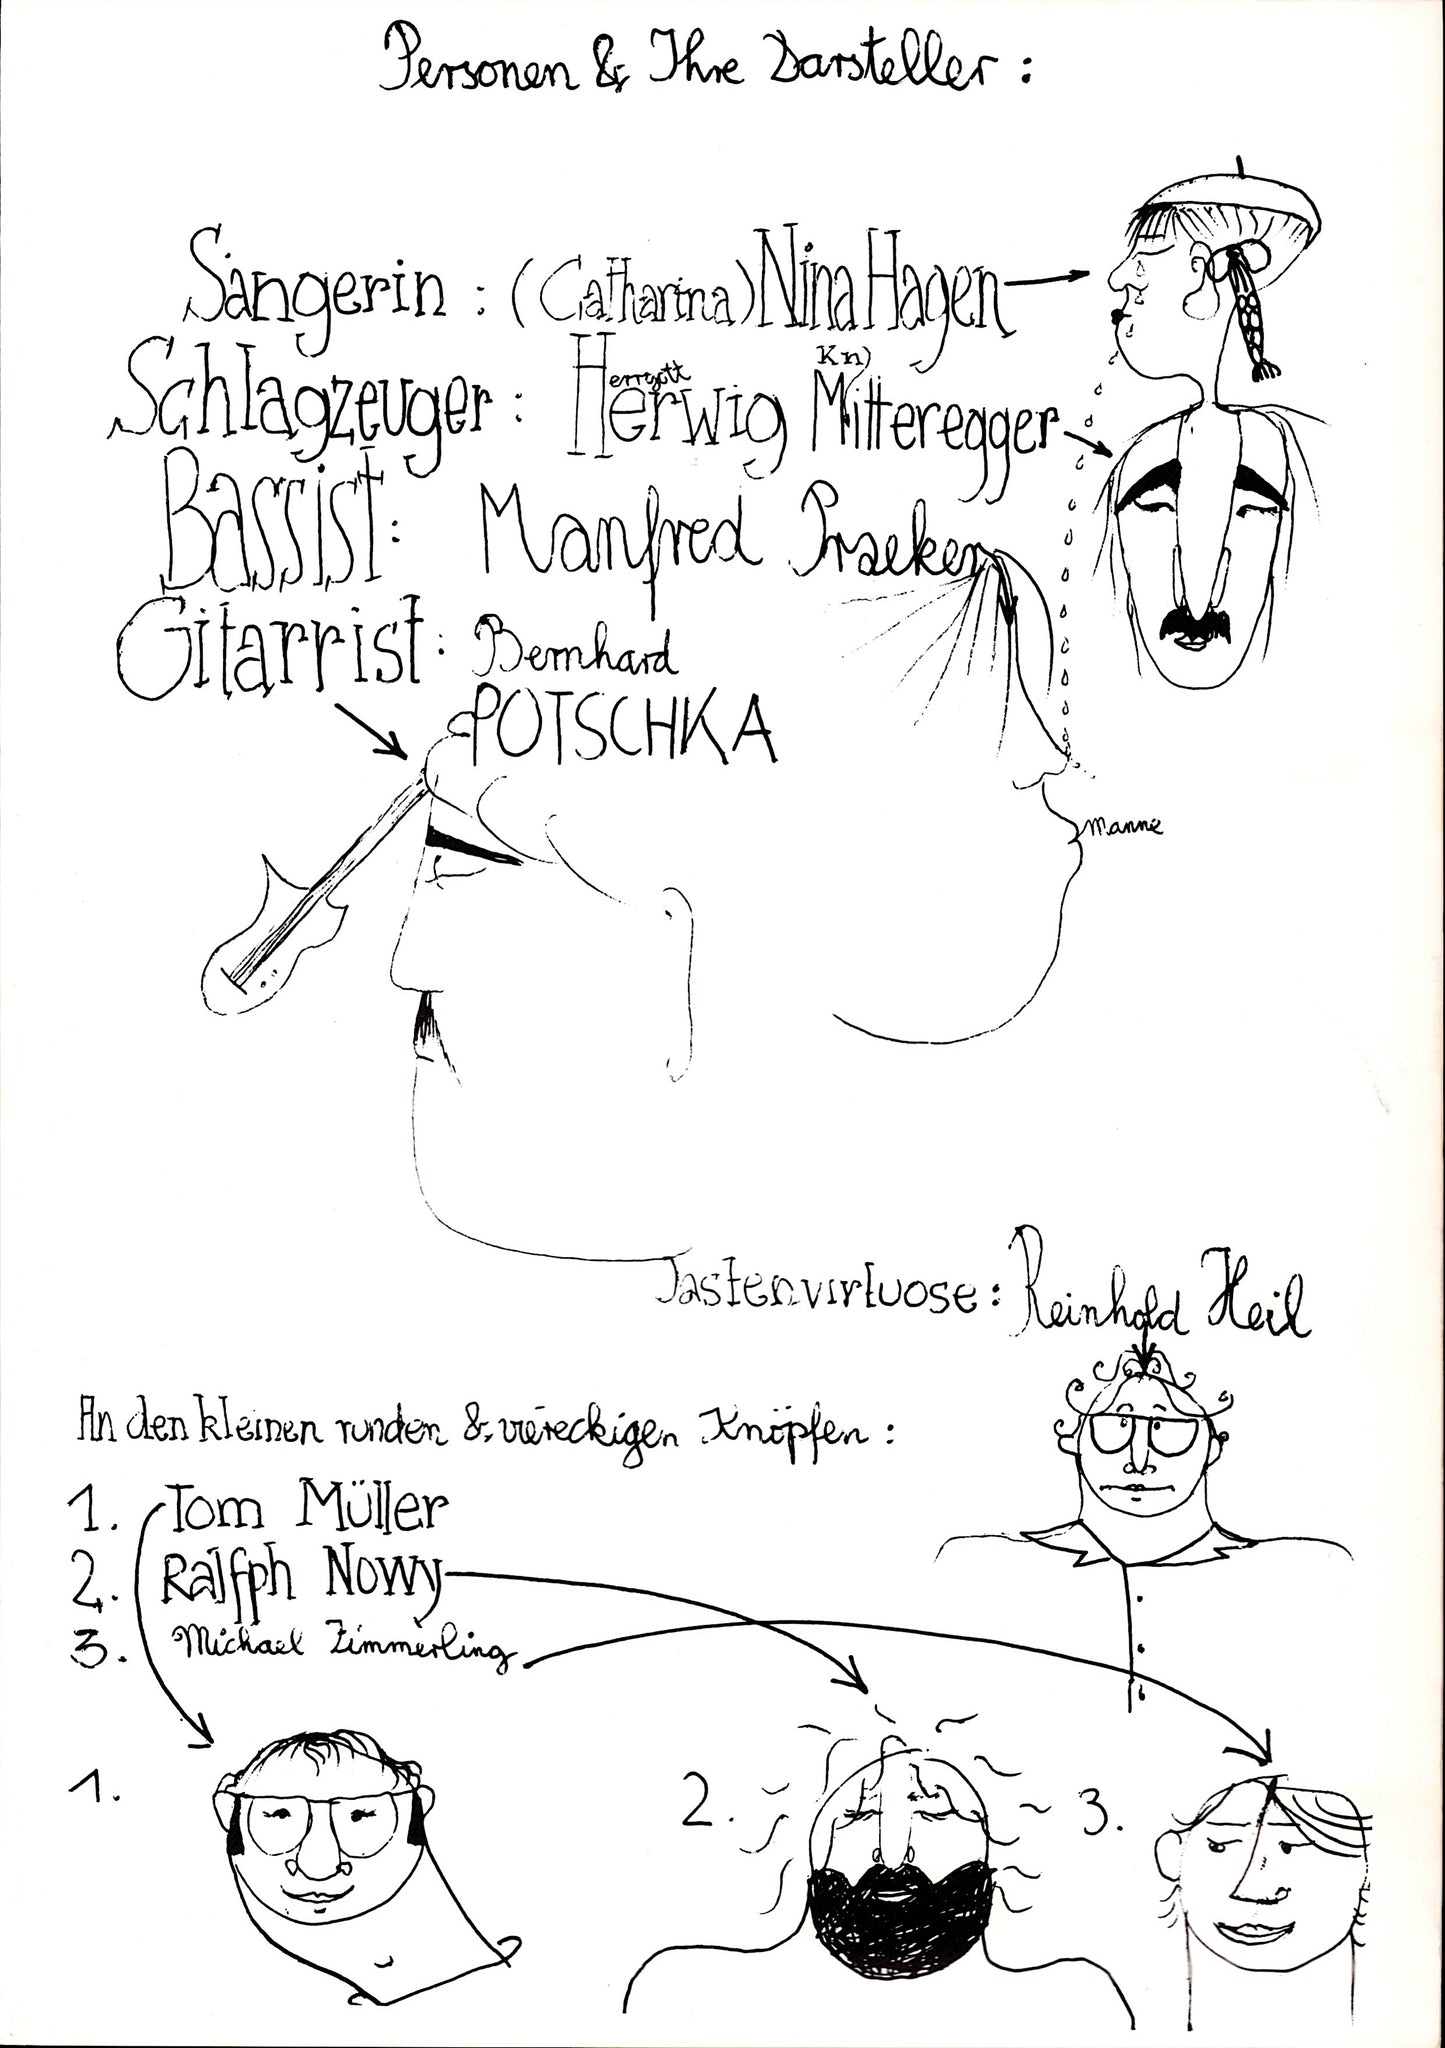 Personen & Ihre Darsteller :
Sängerin : (Catharina) Nina Hagen
Kn)
Herrgott
Schlagzeuger : Herwig Mitteregger
Bassist : Manfred Praeker
Gitarrist : Bernhard
POTSCHKA
Manne
Tastenvirtuose : Reinhold Heil
An den kleinen runden & viereckigen Knöpfen :
1. Tom Müller
2. Ralfph Nowy
3. Michael Zimmerling
1.
2.
3.